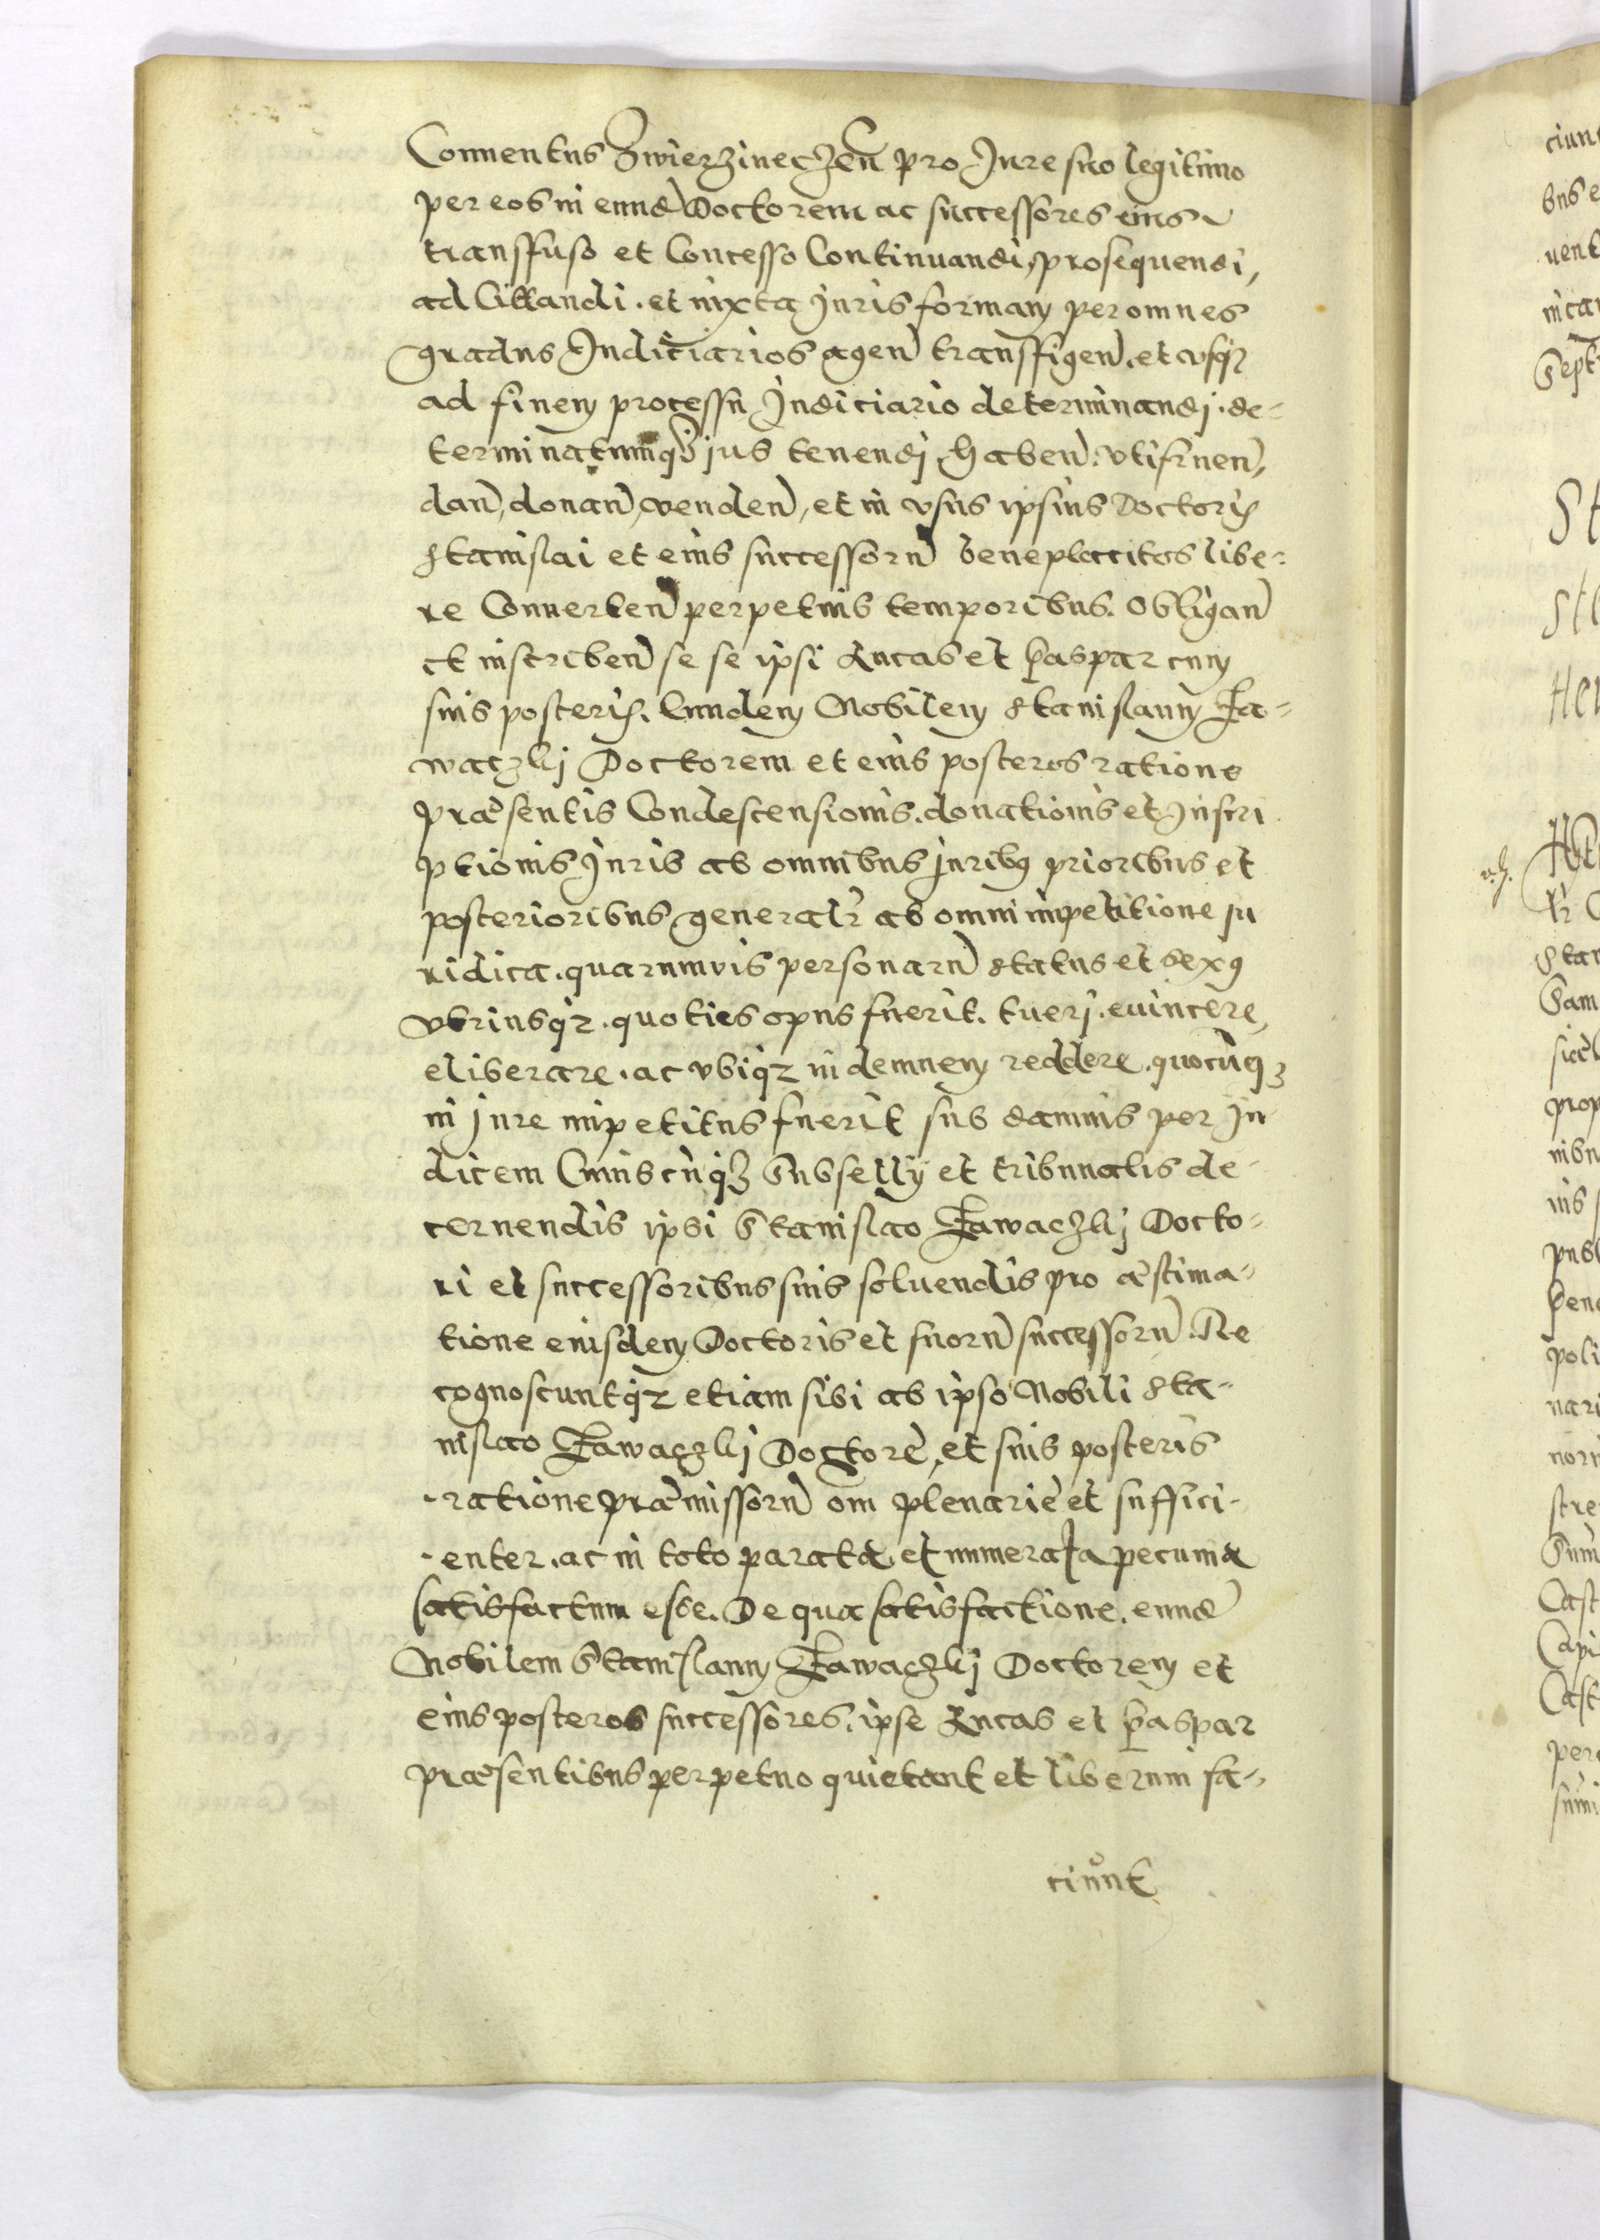 Conuentus Zwierzineczen̄ pro Jure suo legitimo
per eos in eund̄ Doctorem ac successores eius
transffuso et Concesso Continuandi, prosequendi,
ad Cittandi. et iuxta Juris formam per omnes
gradus Judiciarios agen̄ transfigen̄. et vsq3
ad finem processu Judiciario determinandj. de-
terminatumq3 jus tenendj, haben̄. vtifruen̄,
dan̄, donan̄, venden̄, et in vsus ipsius Doctoris
Stanislai et eius successorū beneplacitos libe-
re Conuerten̄ perpetuis temporibus. Obligan̄
et inscriben̄ se se ipsi Lucas et Caspar cum
suis posteris. Eundem Nobilem Stanislaum Za-
waczkj Doctorem et eius posteros ratione
præsentis Condescensionis. donationis et Inscri
ptionis Juris ab omnibus juribus prioribus et
posterioribus generalr ab omni impetitione ju
ridica. quarumvis personarū status et sexus
vtriusq3. quoties opus fuerit. tuerj. euincere,
eliberare. ac vbiq3 indemnem reddere. quocūq3
in jure impetitus fuerit sub damnis per Ju
dicem Cuiuscūq3 Subsellÿ et tribunalis de-
cernendis ipsi Stanislao Zawaczkj Docto-
ri et successoribus suis soluendis pro æstima-
tione eiusdem Doctoris et suorū successorū. Re
cognoscuntq3 etiam sibi ab ipso Nobili Sta-
nislao Zawaczkj Doctore, et suis posteris
ratione præmissorū om plenariè et suffici-
enter. ac in toto parata et numerata pecunia
satisfactum esse. De qua satisfactione. eund̄
Nobilem Stanislaum Zawaczkj Doctorem et
eius posteros successores. ipse Lucas et Caspar
præsentibus perpetuo quietant et liberum fa-
ciunt